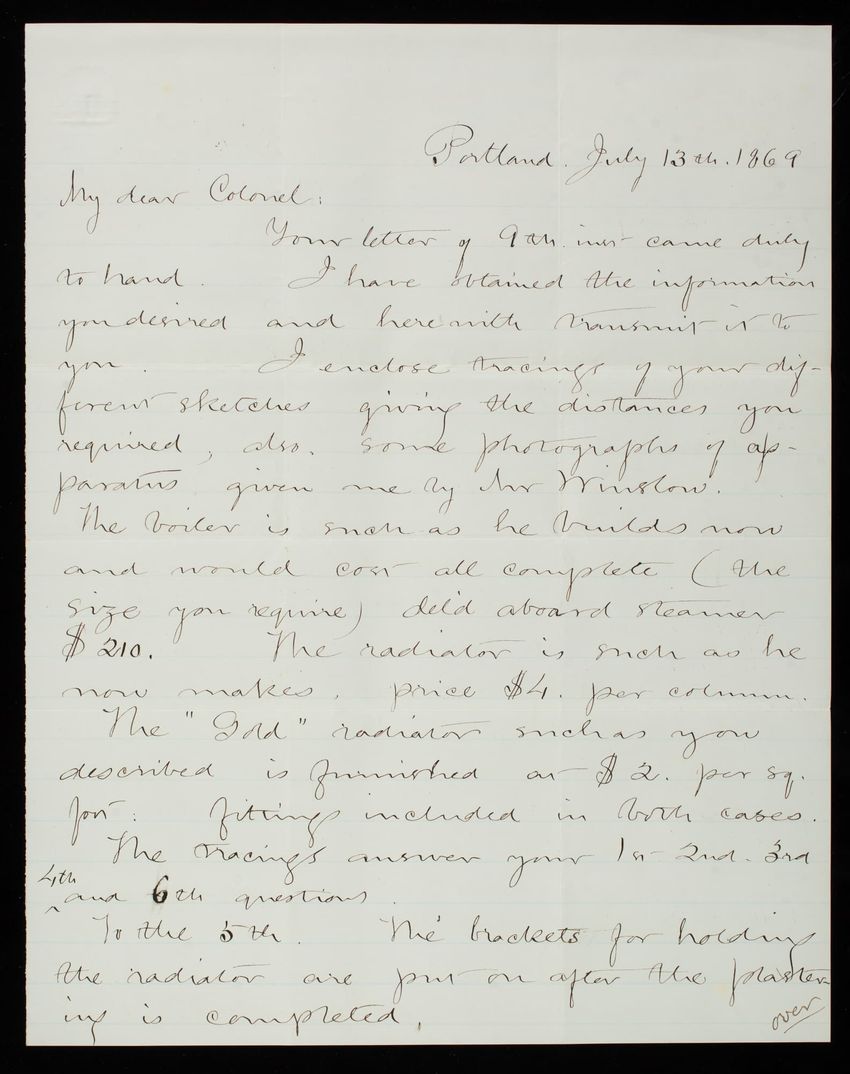 Portland. July 13th. 1869
My dear Colonel:
Your letter of 9th. inst came duly
to hand. I have obtained the information
you desired and herewith transmit it to
you. I enclose tracings of your dif-
ferent sketches giving the distances you
required, also. some photographs of ap-
paratus given me by Mr Winslow.
The boiler is such as he builds now
and would cost all complete (the
size you require) del'd aboard steamer
$210. The radiator is such as he
now makes, price $4. per column.
The "Gold" radiator such as you
described is furnished at $2. per sq.
foot: fittings included in both cases.
The tracings answer your 1st 2nd. 3rd
4th
^ and 6th questions.
To the 5th. The brackets for holding
the radiator are put on after the plaster-
ing is completed.
over